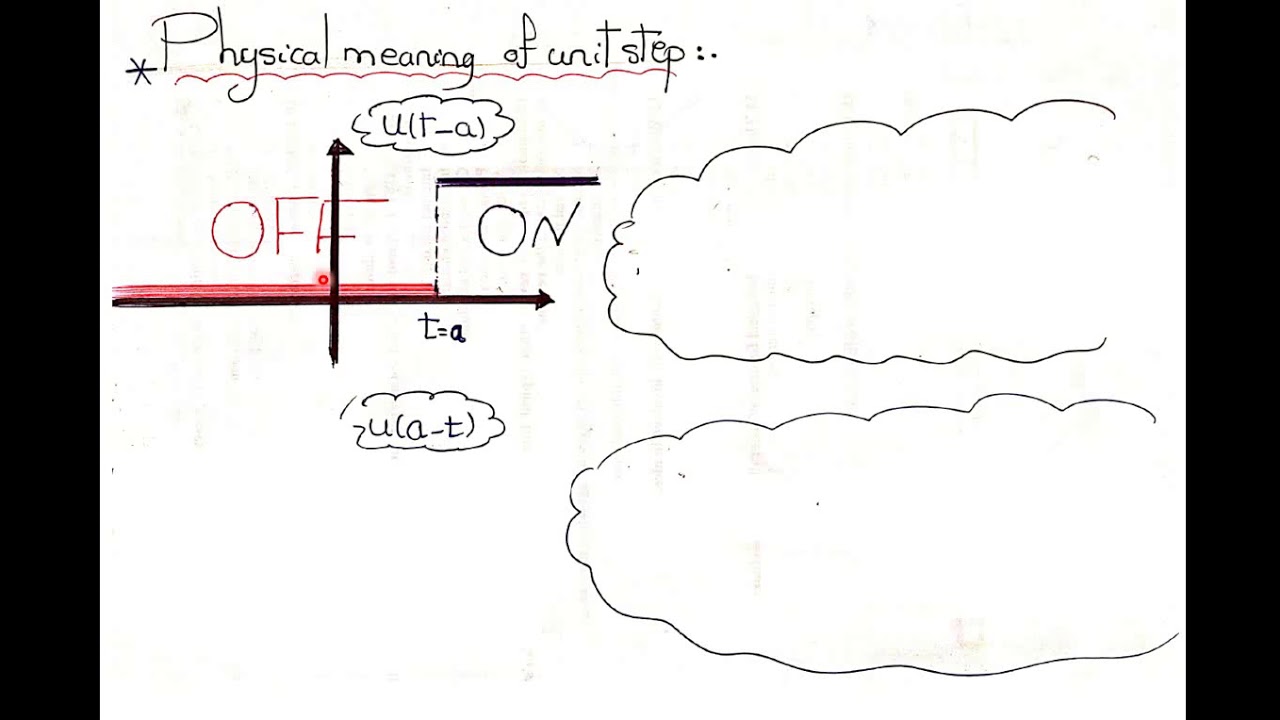 * Physical meaning of unit step :.
u(t-a)
OFF
ON
t=a
u(a-t)